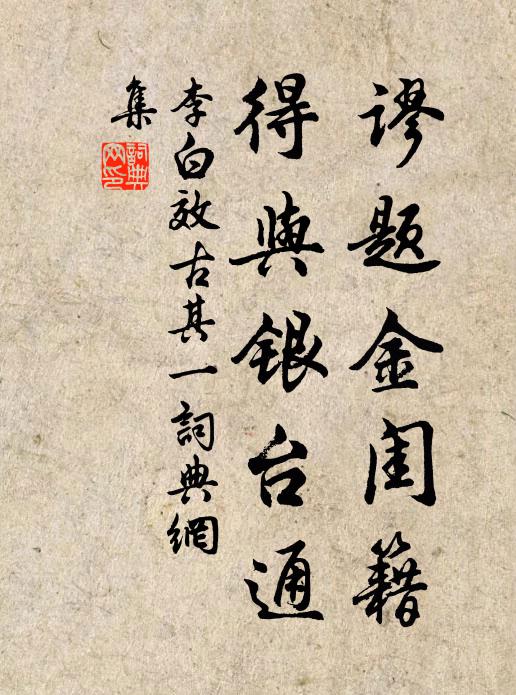 谬题金闺籍
得與银台通
李白效古其一詞典網
集
詞典网印